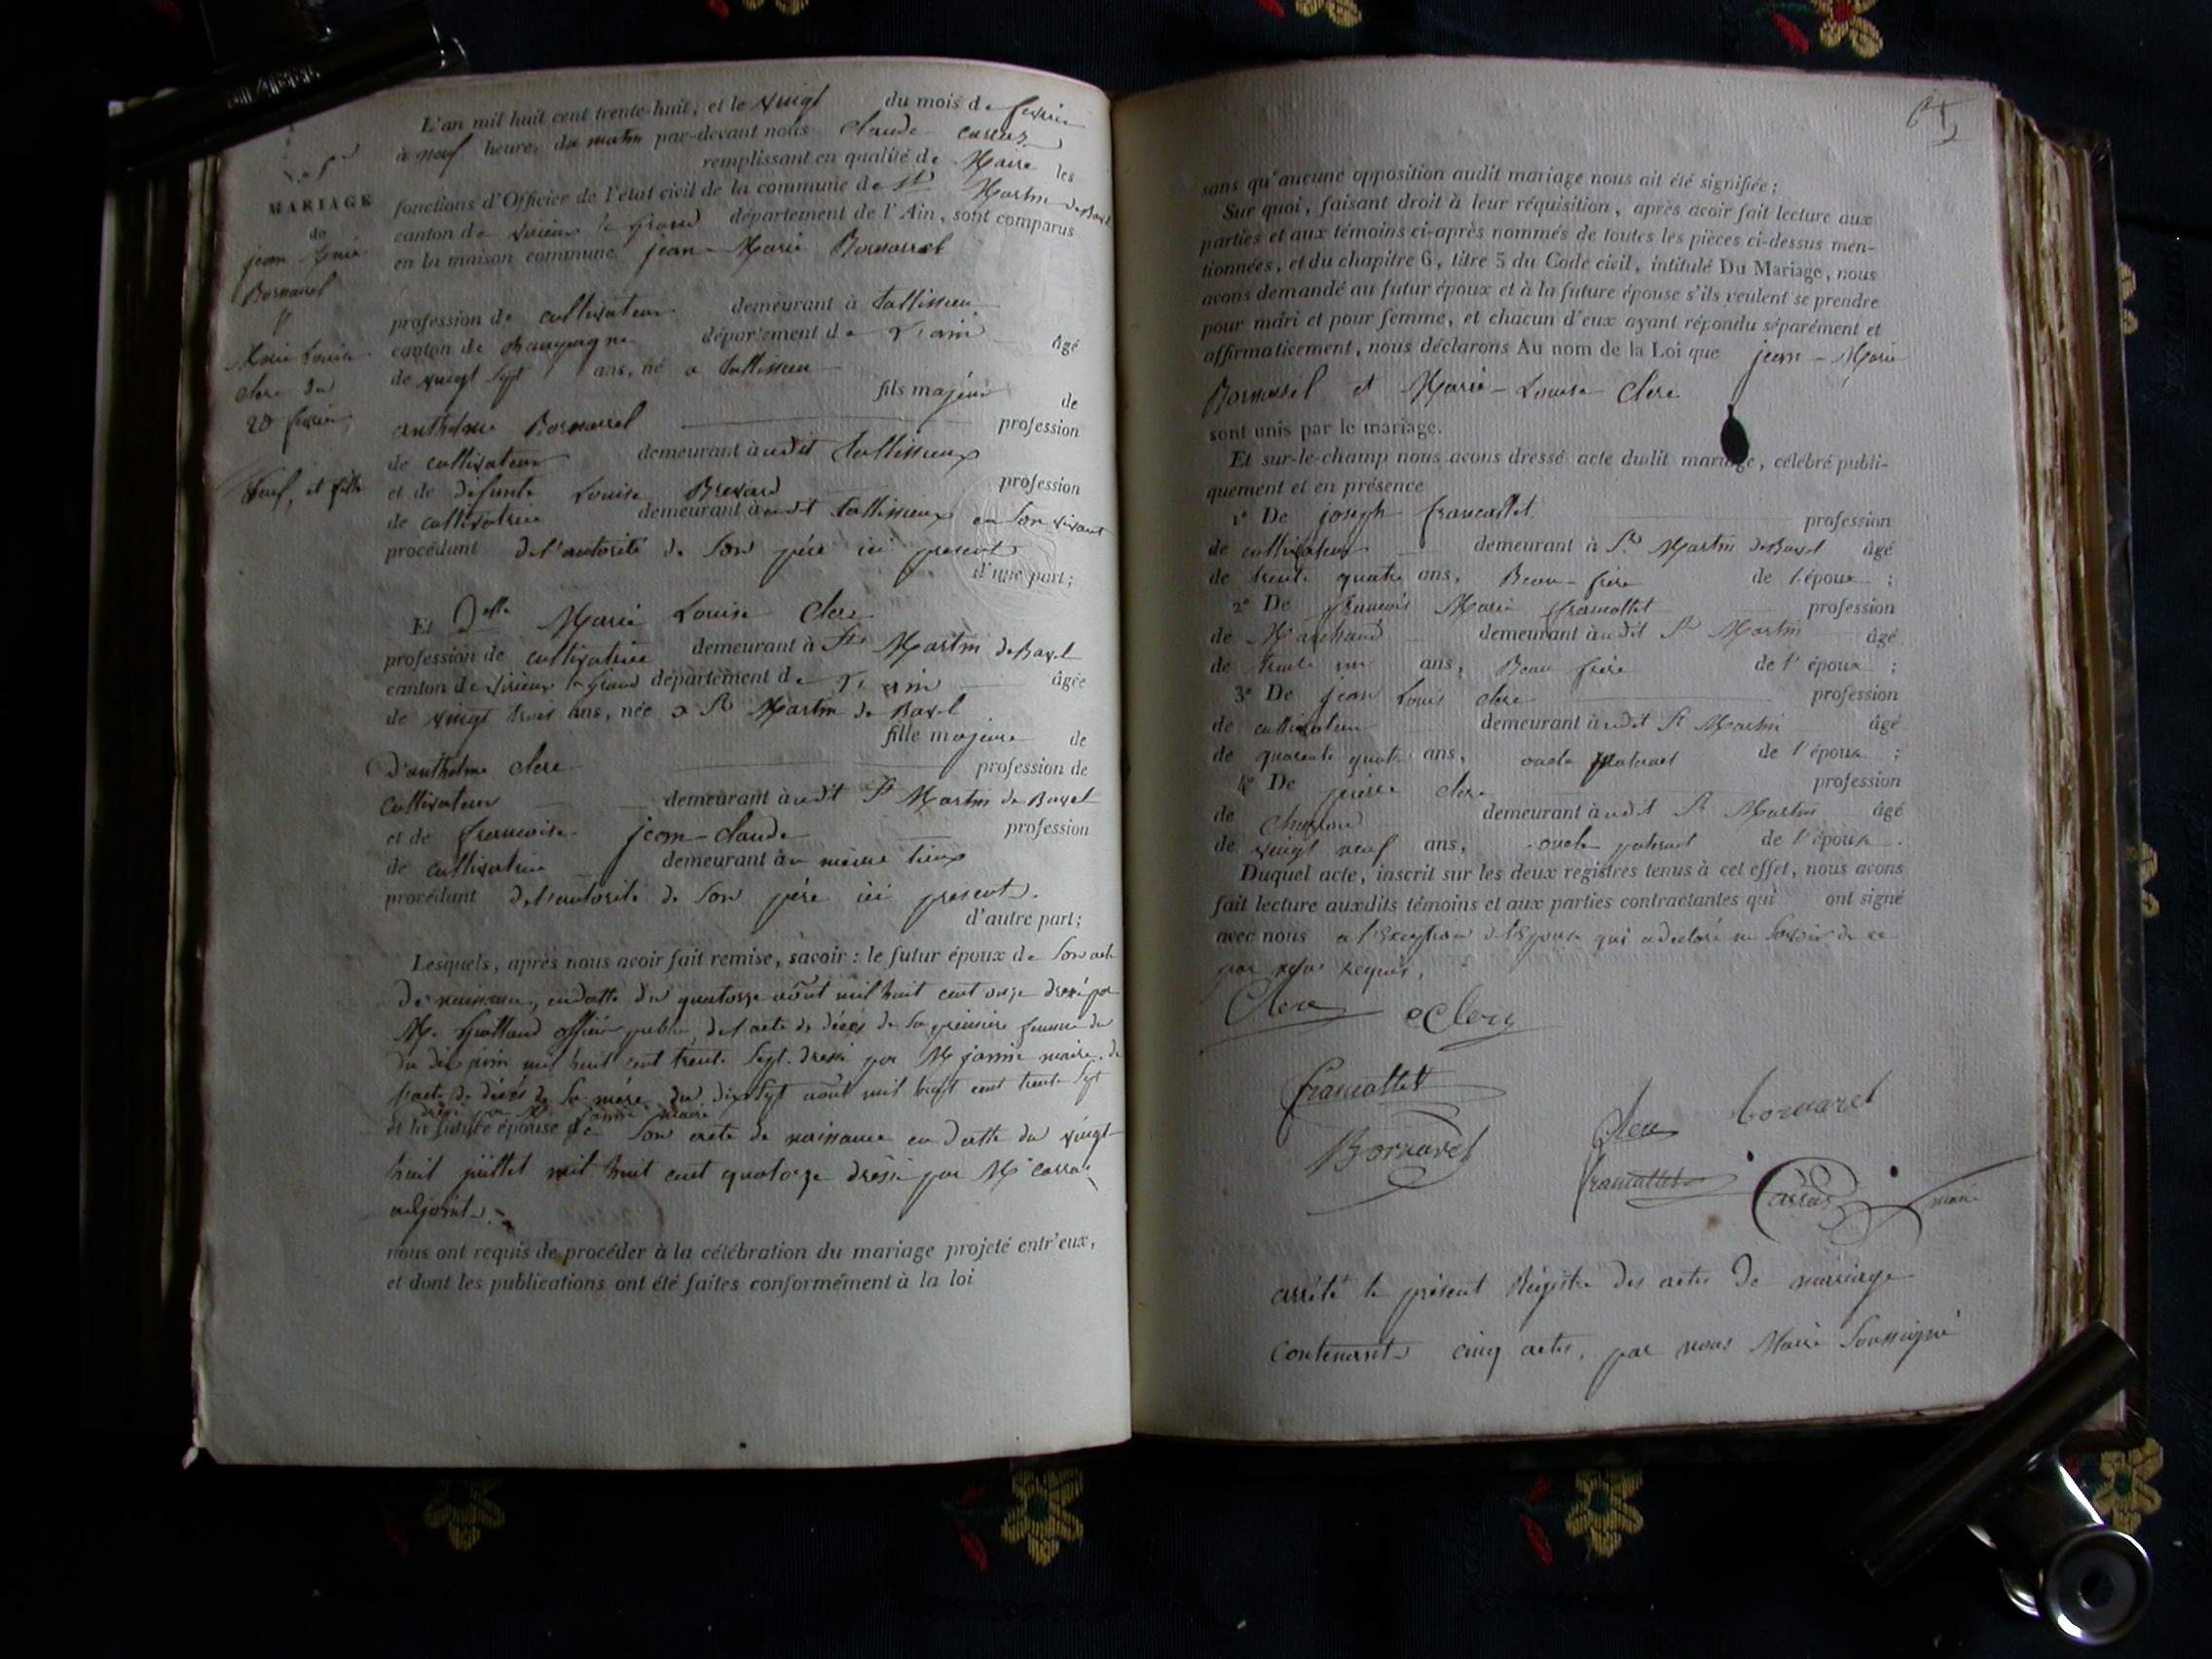 N.° 5
MARIAGE
de
jean Marie
Bornarel
et
Marie Louise
Clerc du
20 février
veuf, et fille
L'an mil huit cent trente-huit, et le vingt du mois de février
à neuf heure, du matin par-devant nous Claude carraz
remplissant en qualité de Maire les
fonctions d'Officier de l'état civil de la commune de St Martin de Bavel
canton de virieux le grand département de l'Ain, sont comparus
en la maison commune jean-Marie Bornarel
profession de cultivateur demeurant à tallissieu
canton de champagne département de L'ain âgé
de vingt Sept ans, né a tallissieu
fils majeur de
anthelme Bornarel profession
de cultivateur demeurant audit tallissieux
et de défunte Louise Brevard profession
de cultivatrice demeurant audit tallissieux en Son vivant
procédant de l'autorité de Son père ici present
d'une part;
Et Delle Marie Louise Clerc
profession de cultivatrice demeurant à St Martin de Bavel
canton de virieux le Grand département de L'ain âgée
de vingt trois ans, née a St Martin de Bavel
fille majeure de
D'anthelme Clerc profession de
Cultivateur demeurant audit St Martin de Bavel
et de francoise jean-claude profession
de cultivatrice demeurant au même lieux
procédant de l'autorité de Son père ici present.
d'autre part;
Lesquels, après nous avoir fait remise, savoir : le futur époux de Son acte
de naissance, en datte du quatorze août mil huit cent onze dressé par
M. officier public, de l'acte de décès de Sa première femme
du dix juin mil huit cent trente Sept. dressé par M janin maire. de
l'acte de décès de Sa mère du dix Sept août mil huit cent trente Sept
dressé par M. janin maire
et la future épouse de Son acte de naissance en datte du vingt
huit juillet mil huit cent quatorze dressé par M carraz
adjoint.
nous ont requis de procéder à la célébration du mariage projeté entr'eux,
et dont les publications ont été faites conformément à la loi
sans qu'aucune opposition audit mariage nous ait été signifiée;
Sur quoi, faisant droit à leur réquisition, après avoir fait lecture aux
parties et aux témoins ci-après nommés de toutes les pièces ci-dessus men-
tionnées, et du chapitre 6, titre 5 du Code civil, intitulé Du Mariage, nous
avons demandé au futur époux et à la future épouse s'ils veulent se prendre
pour mari et pour femme, et chacun d'eux ayant répondu séparément et
affirmativement, nous déclarons Au nom de la Loi que jean-Marie
Bornarel et Marie-Louise Clerc
sont unis par le mariage.
Et sur-le-champ nous avons dressé acte dudit mariage, célébré publi-
quement et en présence
1° De joseph francallet profession
de cultivateur demeurant à St Martin de Bavel âgé
de trente quatre ans, Beau-frère de l'épouse ;
2° De francois Marie francallet profession
de Marchand demeurant audit St Martin âgé
de trente un ans, Beau frère de l'épouse ;
3° De jean Louis clerc profession
de cultivateur demeurant audit St Martin âgé
de quarente quatre ans, oncle paternel de l'épouse ;
4° De pierre clerc profession
de Charron demeurant audit St Martin âgé
de vingt neuf ans, oncle paternel de l'épouse.
Duquel acte, inscrit sur les deux registres tenus à cet effet, nous avons
fait lecture auxdits témoins et aux parties contractantes qui ont signé
avec nous a l'exception de l'épouse qui a declaré ne Savoir de ce
par nous requis.
Clerc Clerc
francallet
Clerc bornarel
Bornarel
francallet Carraz maire
arrété le présent Régistre des actes de mariage
Contenant cinq actes, par nous Maire Soussigné